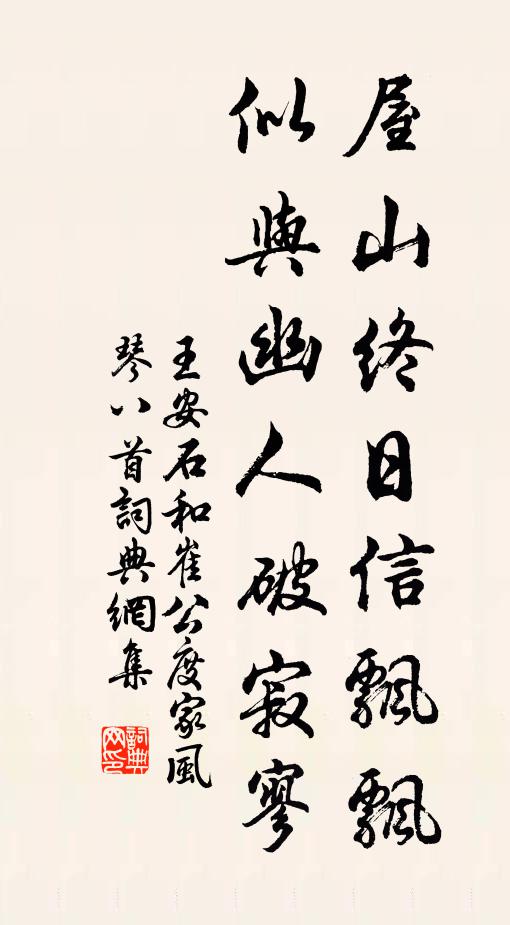 屋山終日信飄飄
似與幽人破寂寥
王安石和崔公度家風
琴八首詞典網集
詞典
网印